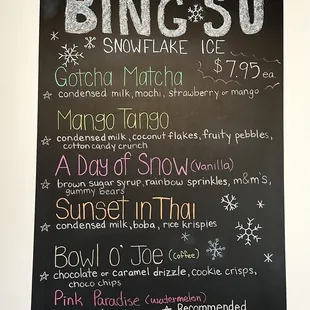 BING SU
SNOWFLAKE ICE
$7.95 ea.
Gotcha Matcha
condensed milk, mochi, strawberry or mango
Mango Tango
condensed milk, coconut flakes, fruity pebbles,
cotton candy crunch
A Day of Snow (Vanilla)
brown sugar syrup, rainbow sprinkles, m&m's,
gummy bears
Sunset in Thai
condensed milk, boba, rice krispies
Bowl O' Joe (coffee)
chocolate or caramel drizzle, cookie crisps,
choco chips
Pink Paradise (watermelon)
Recommended